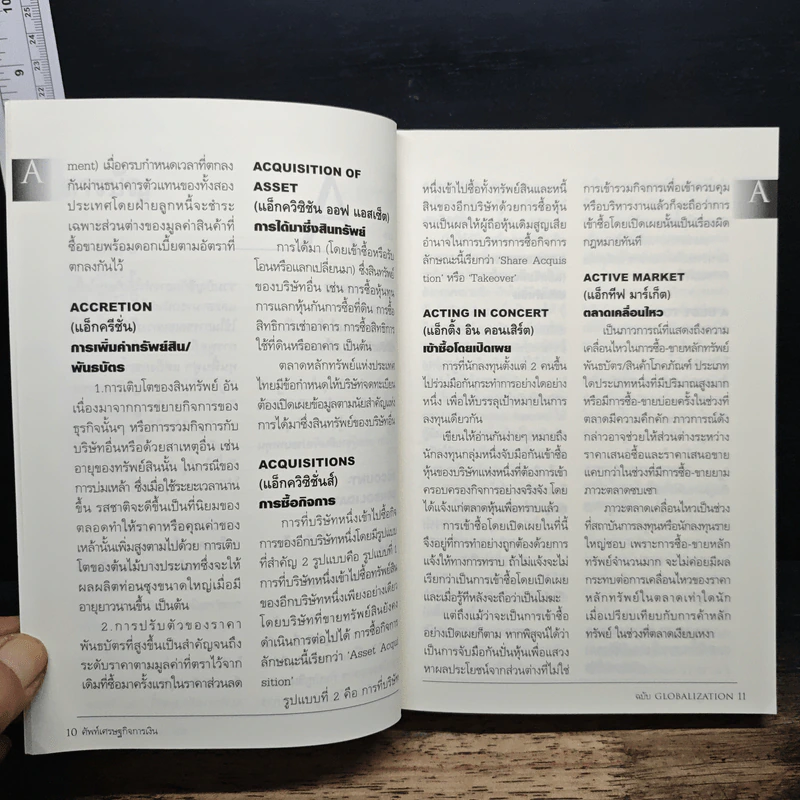 A
ment) เมื่อครบกำหนดเวลาที่ตกลง
กันผ่านธนาคารตัวแทนของทั้งสอง
ประเทศโดยฝ่ายลูกหนี้จะชำระ
เฉพาะส่วนต่างของมูลค่าสินค้าที่
ซื้อขายพร้อมดอกเบี้ยตามอัตราที่
ตกลงกันไว้
ACCRETION
(แอ็กครีชั่น)
การเพิ่มค่าทรัพย์สิน/
พันธบัตร
1.การเติบโตของสินทรัพย์ อัน
เนื่องมาจากการขยายกิจการของ
ธุรกิจนั้นๆ หรือการรวมกิจการกับ
บริษัทอื่นหรือด้วยสาเหตุอื่น เช่น
อายุของทรัพย์สินนั้น ในกรณีของ
การบ่มเหล้า ซึ่งเมื่อใช้ระยะเวลานาน
ขึ้น รสชาติจะดีขึ้นเป็นที่นิยมของ
ตลอดทำให้ราคาหรือคุณค่าของ
เหล้านั้นเพิ่มสูงตามไปด้วย การเติบ
โตของต้นไม้บางประเภทซึ่งจะให้
ผลผลิตท่อนซุงขนาดใหญ่เมื่อมี
อายุยาวนานขึ้น เป็นต้น
2.การปรับตัวของราคา
พันธบัตรที่สูงขึ้นเป็นสำคัญจนถึง
ระดับราคาตามมูลค่าที่ตราไว้จาก
เดิมที่ซื้อมาครั้งแรกในราคาส่วนลด
ACQUISITION OF
ASSET
(แอ็กควิซิชัน ออฟ แอสเซ็ต)
การได้มาซึ่งสินทรัพย์
การได้มา (โดยเข้าซื้อหรือรับ
โอนหรือแลกเปลี่ยนมา) ซึ่งสินทรัพย์
ของบริษัทอื่น เช่น การซื้อหุ้นทุน
การแลกหุ้นกันการซื้อที่ดิน การซื้อ
สิทธิการเช่าอาคาร การซื้อสิทธิการ
ใช้ที่ดินหรืออาคาร เป็นต้น
ตลาดหลักทรัพย์แห่งประเทศ
ไทยมีข้อกำหนดให้บริษัทจดทะเบียน
ต้องเปิดเผยข้อมูลตามนัยสำคัญแห่ง
การได้มาซึ่งทรัพย์สินของบริษัทอื่น
ACQUISITIONS
(แอ็กควิซิชั่นส์)
การซื้อกิจการ
การที่บริษัทหนึ่งเข้าไปซื้อกิจ
การของอีกบริษัทหนึ่งโดยมีรูปแบบ
ที่สำคัญ 2 รูปแบบคือ รูปแบบที่ 1
การที่บริษัทหนึ่งเข้าไปซื้อทรัพย์สิน
ของอีกบริษัทหนึ่งเพียงอย่างเดียว
โดยบริษัทที่ขายทรัพย์สินยังคง
ดำเนินการต่อไปได้ การซื้อกิจการ
ลักษณะนี้เรียกว่า 'Asset Acqui
sition'
รูปแบบที่ 2 คือ การที่บริษัท
10 ศัพท์เศรษฐกิจการเงิน
A
หนึ่งเข้าไปซื้อทั้งทรัพย์สินและหนี้
สินของอีกบริษัทด้วยการซื้อหุ้น
จนเป็นผลให้ผู้ถือหุ้นเดิมสูญเสีย
อำนาจในการบริหารการซื้อกิจการ
ลักษณะนี้เรียกว่า 'Share Acquis
tion' หรือ 'Takeover'
ACTING IN CONCERT
(แอ็กติ้ง อิน คอนเสิร์ต)
เข้าซื้อโดยเปิดเผย
การที่นักลงทุนตั้งแต่ 2 คนขึ้น
ไปร่วมมือกันกระทำการอย่างใดอย่าง
หนึ่ง เพื่อให้บรรลุเป้าหมายในการ
ลงทุนเดียวกัน
เขียนให้อ่านกันง่ายๆ หมายถึง
นักลงทุนกลุ่มหนึ่งจับมือกันเข้าซื้อ
หุ้นของบริษัทแห่งหนึ่งที่ต้องการเข้า
ครอบครองกิจการอย่างจริงจัง โดย
ได้แจ้งแก่ตลาดหุ้นเพื่อทราบแล้ว
การเข้าซื้อโดยเปิดเผยในที่นี้
จึงอยู่ที่การทำอย่างถูกต้องด้วยการ
แจ้งให้ทางการทราบ ถ้าไม่แจ้งจะไม่
เรียกว่าเป็นการเข้าซื้อโดยเปิดเผย
และเมื่อรู้ทีหลังจะถือว่าเป็นโมฆะ
แต่ถึงแม้ว่าจะเป็นการเข้าซื้อ
อย่างเปิดเผยก็ตาม หากพิสูจน์ได้ว่า
เป็นการจับมือกันปั่นหุ้นเพื่อแสวง
หาผลประโยชน์จากส่วนต่างที่ไม่ใช่
การเข้ารวมกิจการเพื่อเข้าควบคุม
หรือบริหารงานแล้วก็จะถือว่าการ
เข้าซื้อโดยเปิดเผยนั้นเป็นเรื่องผิด
กฎหมายทันที
ACTIVE MARKET
(แอ็กทีฟ มาร์เก็ต)
ตลาดเคลื่อนไหว
เป็นภาวการณ์ที่แสดงถึงความ
เคลื่อนไหวในการซื้อ-ขายหลักทรัพย์
พันธบัตร/สินค้าโภคภัณฑ์ ประเภท
ใดประเภทหนึ่งที่มีปริมาณสูงมาก
หรือมีการซื้อ-ขายบ่อยครั้งในช่วงที่
ตลาดมีความคึกคัก ภาวการณ์ดัง
กล่าวอาจช่วยให้ส่วนต่างระหว่าง
ราคาเสนอซื้อและราคาเสนอขาย
แคบกว่าในช่วงที่มีการซื้อ-ขายยาม
ภาวะตลาดซบเซา
ภาวะตลาดเคลื่อนไหวเป็นช่วง
ที่สถาบันการลงทุนหรือนักลงทุนราย
ใหญ่ชอบ เพราะการซื้อ-ขายหลัก
ทรัพย์จำนวนมาก จะไม่ค่อยมีผล
กระทบต่อการเคลื่อนไหวของราคา
หลักทรัพย์ในตลาดเท่าใดนัก
เมื่อเปรียบเทียบกับการค้าหลัก
ทรัพย์ ในช่วงที่ตลาดเงียบเหงา
ฉบับ GLOBALIZATION 11